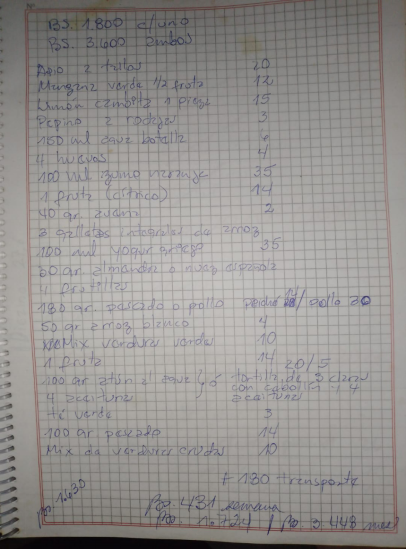 BS. 1.800 c/uno
BS. 3.600 ambos
Apio 2 tallos 20
Manzana verde 1/2 fruta 12
Limón 1 pieza 15
Pepino 2 rodajas 3
150 ml agua botella
4 huevos 4
100 ml zumo naranja 35
1 fruta (cítrico) 14
40 gr. 2
3 galletas integrales de arroz
100 ml yogur griego 35
almendra o nuez
4 frutillas
180 gr. pescado o pollo / pollo 20
50 gr arroz blanco 4
Mix verduras verdes 10
1 fruta 14
20/5
100 gr atún al agua ó tortilla de 3 claras
4 aceitunas con cebollín y 4
aceitunas
té verde 3
100 gr. pescado 14
Mix de verduras crudas 10
+ 180 transporte
Bs. 431 semana
Bs. 3.448 mes